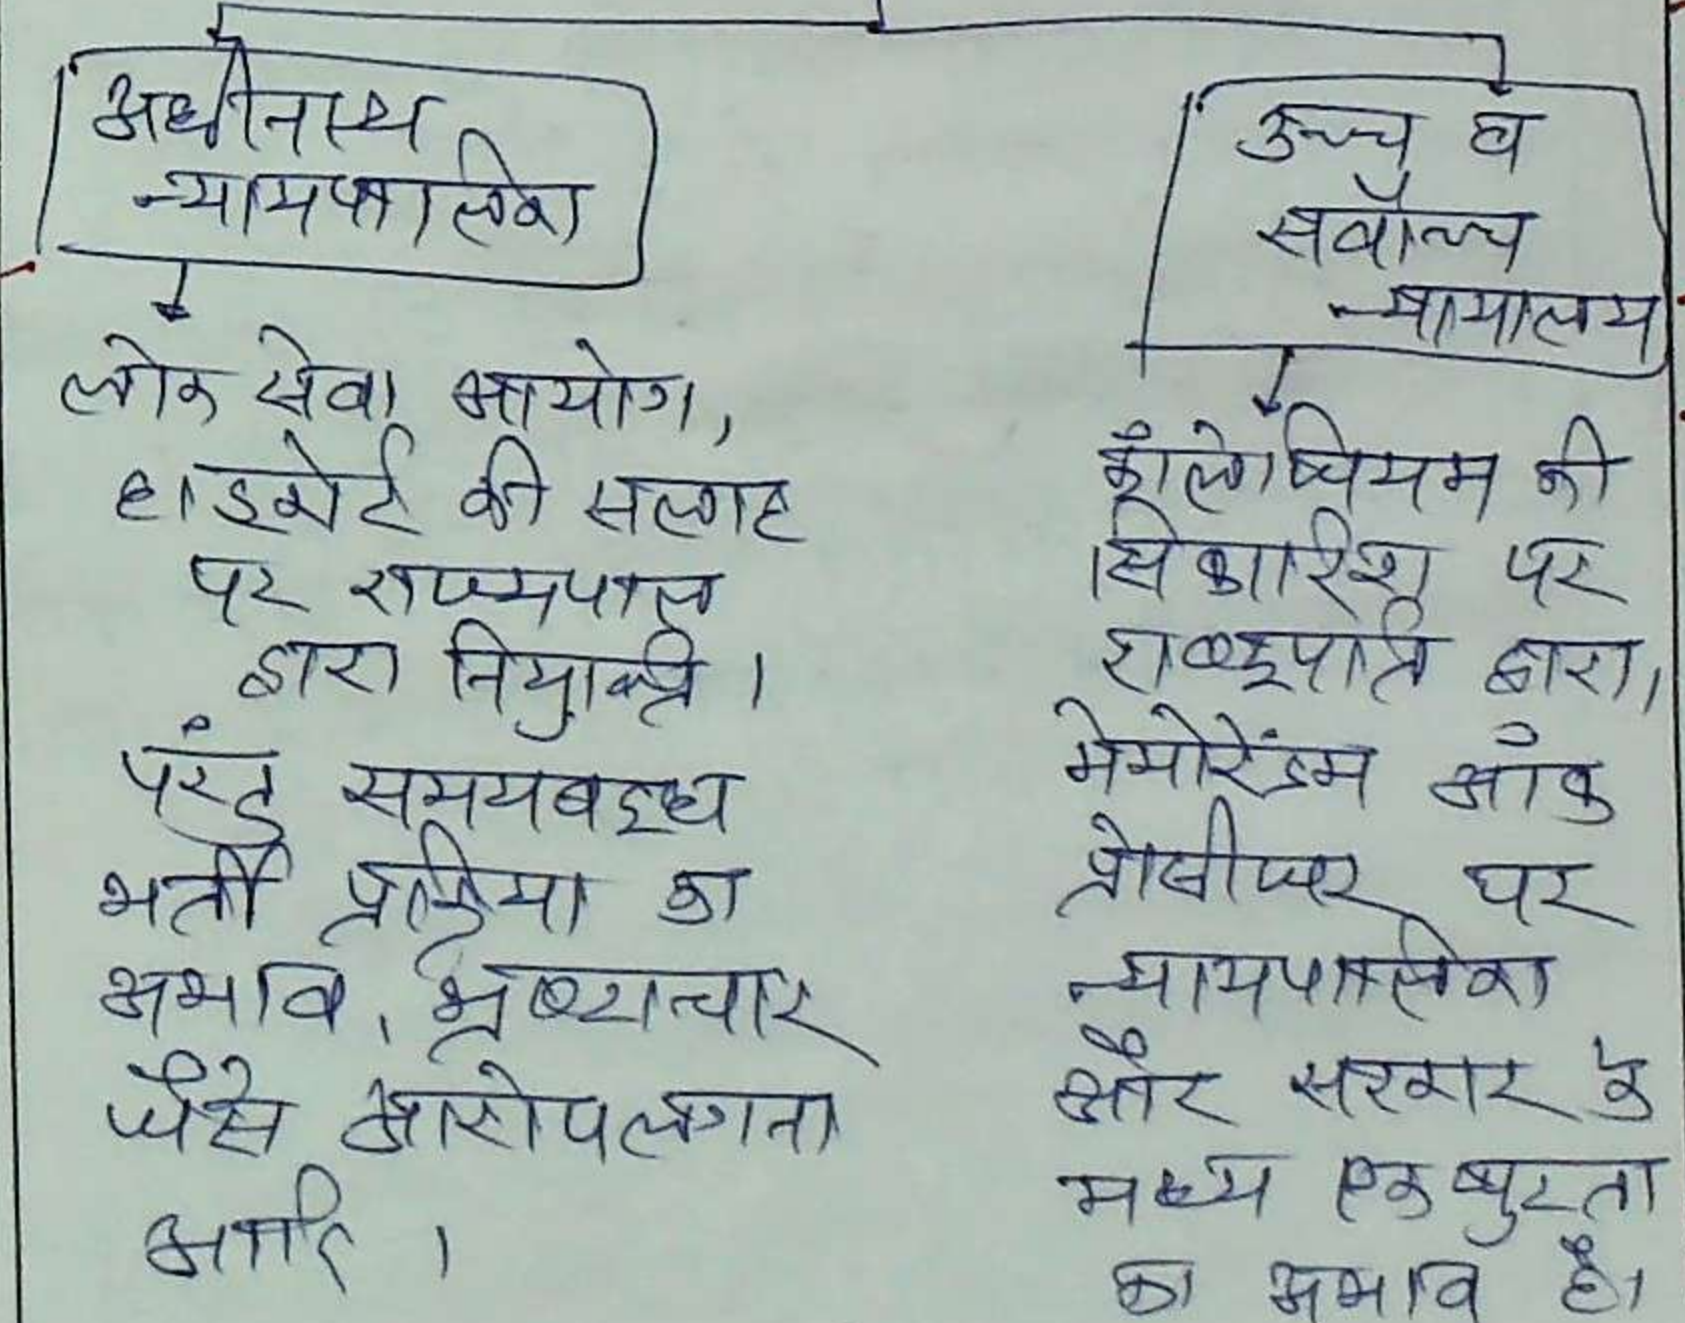 अधीनस्थ
न्यायपालिका
लोक सेवा आयोग,
हाइकोर्ट की सलाह
पर राज्यपाल
द्वारा नियुक्ति।
परंतु समयबद्ध
भर्ती प्रक्रिया का
अभाव, भ्रष्टाचार
जैसे आरोप लगना
आदि।
उच्च व
सर्वोच्च
न्यायालय
कॉलेजियम की
सिफारिश पर
राष्ट्रपति द्वारा,
मेमोरेंडम ऑफ
प्रोसीजर पर
न्यायपालिका
और सरकार के
मध्य एकजुटता
का अभाव है।